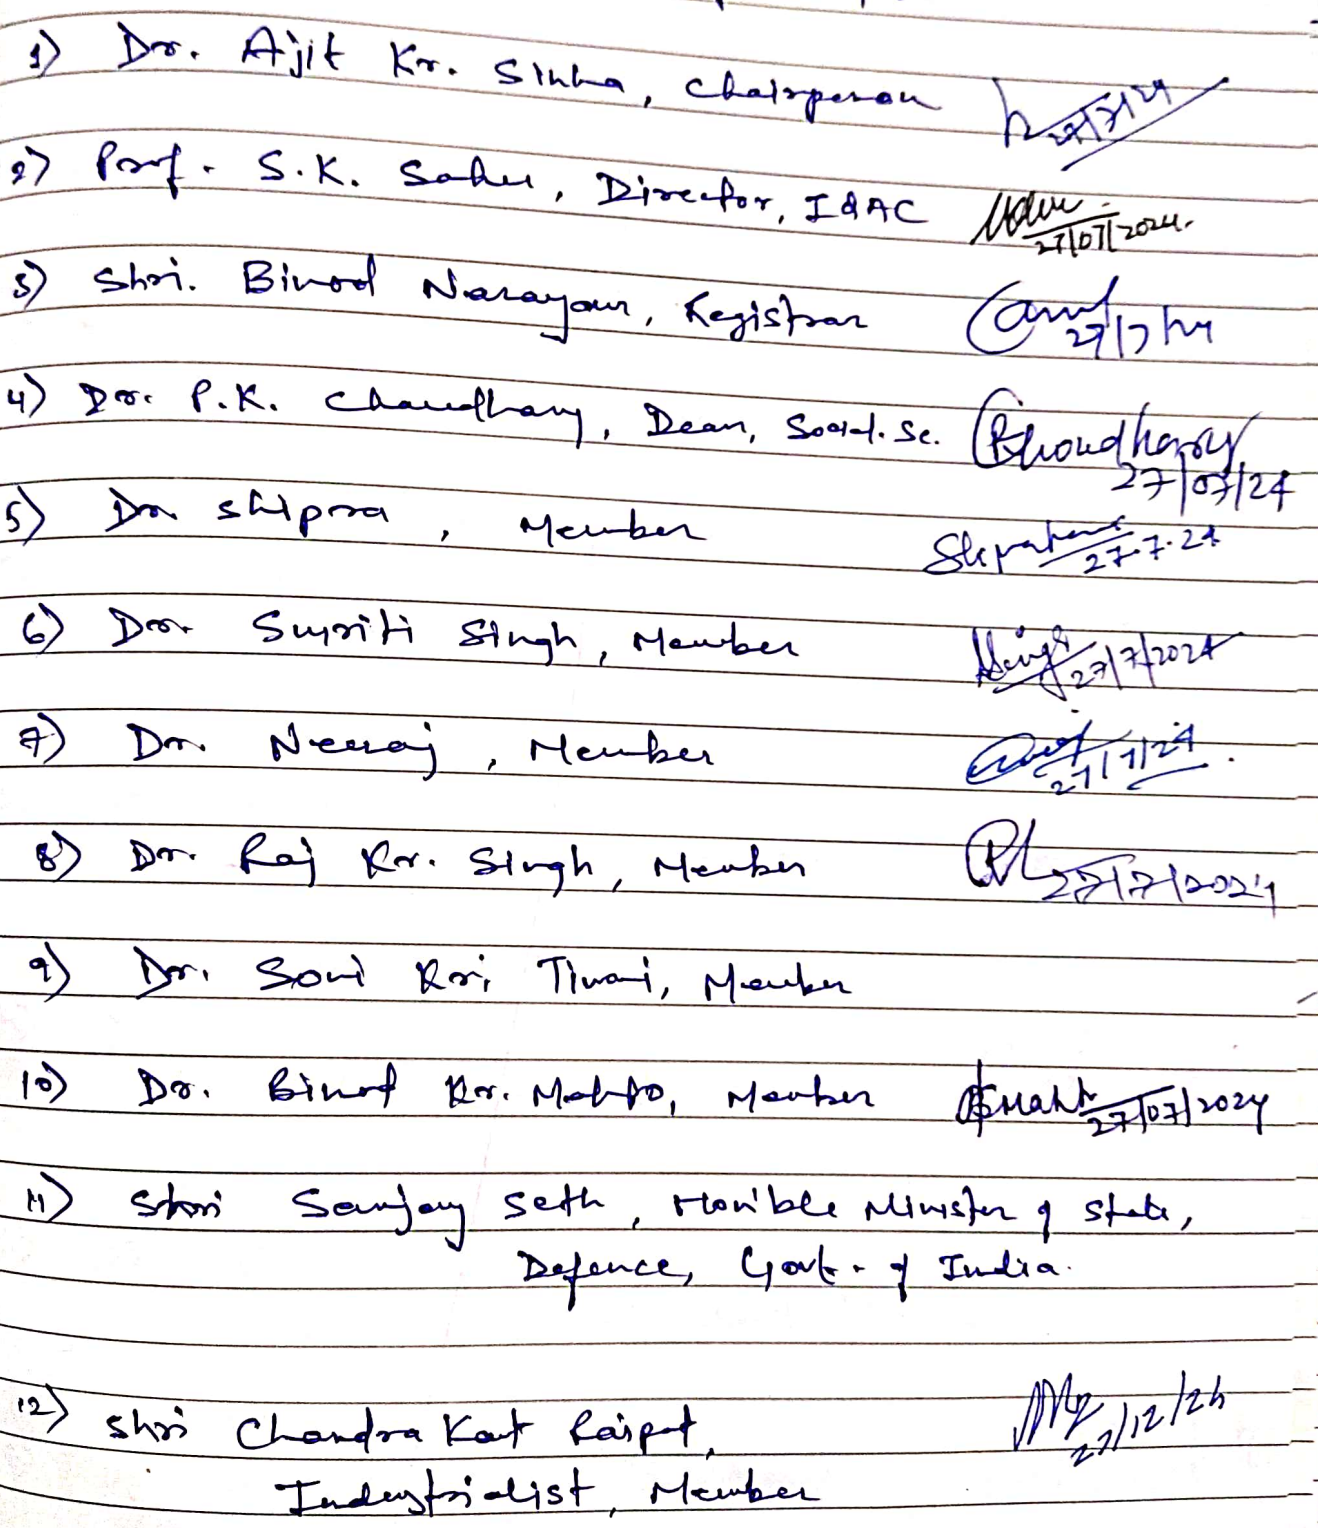 1) Dr. Ajit Kr. Sinha, Chairperson
2) Prof. S.K. Sahu, Director, IQAC 27/07/2024.
3) Shri. Binod Narayan, Registrar
4) Dr. P.K. Chaudhary, Dean, Social. Sc. Choudhary 27/07/24
5) Dr Shipra, Member 27.7.24
6) Dr. Smriti Singh, Member Singh 27/7/2024
7) Dr. Neeraj, Member 27/7/24.
8) Dr. Raj Kr. Singh, Member 27/7/2024
9) Dr. Soni Kri Tiwari, Member
10) Dr. Binod Kr. Mahto, Member 27/07/2024
11) Shri Sanjay Seth, Hon'ble Minister of State,
Defence, Govt. of India.
12) Shri Chandra Kant Raipat,
Industrialist, Member